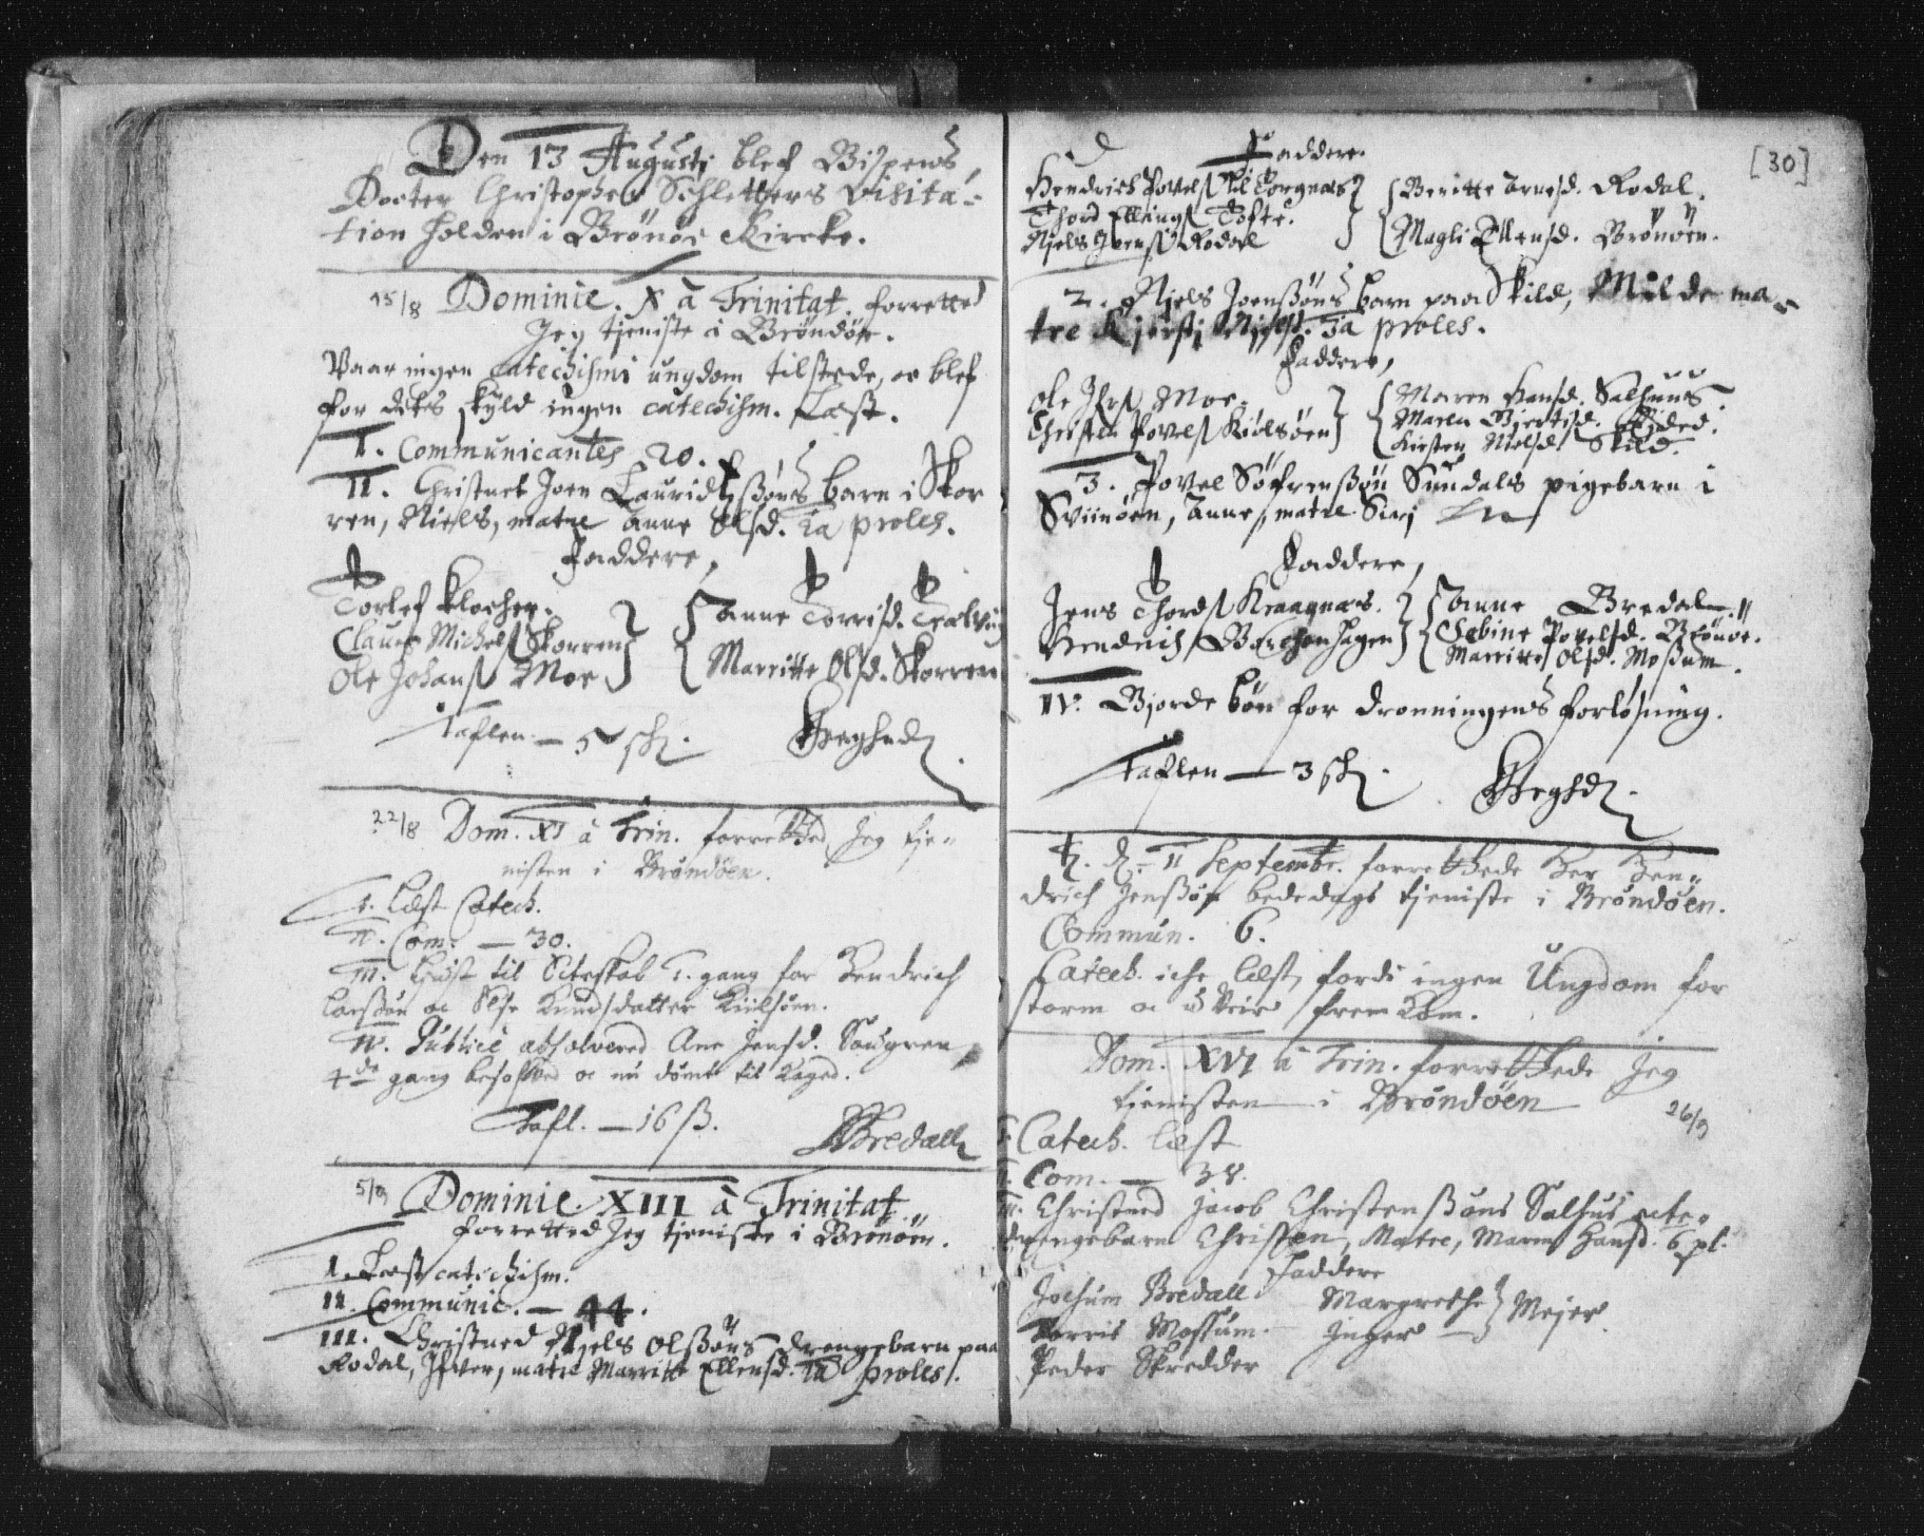 Den 13 Augusti blef Bispens
Docter Christopher Schletters Visita-
tion holden i Brønøe Kircke.
15/8 Dominic. X à Trinitat. forretted
Jeg tjeniste i Brøndøe.
Vaar ingen Catechismi ungdom tilstede, oc blef
for dets skyld ingen catechism. Læst.
I. Communicantes 20.
II. Christnet Joen Lauridtssøns barn i Skor
ren, Niels, matre Anne Olsd. 1a proles.
Faddere,
Torlef Klocher.
Claus Michels Skorren
Ole Johans Moe
Anne Torrisd. Trælvig
Marritte Olsd. Skorren
Taflen — 5 sk.
22/8 Dom. XI à Trin. forretted Jeg tje-
nisten i Brøndøen.
I. Læst Catech.
II. Com. — 30.
III. Lyust til Ecteskab 1. gang for Hendrich
Larssøn oc Else Knudsdatter Kiilsøen.
IV. Publicè absolvered Ane Jensd. Sougren
4de gang besofved oc nu dømt til Kaged.
Tafl. — 16 ß.
Bredall
5/9 Dominic. XIII à Trinitat
forretted Jeg tjeniste i Brønøen.
I. Læst catechism.
II. Communic. — 44.
III. Christned Njels Olssøns drengebarn paa
Rodal, Ifver, matre Marritte Ellensd. 1a proles.
[30]
Faddere.
Hendrich Povels til Torgnæs
Thord Ellings Tofte.
Njels Joens Rodal
Beritte Arnesd. Rodal.
Magli Ellensd. Brønøen.
2. Njels Joenssøns barn paa Skild, Milde ma-
tre Kjersti Njelsd. 3a proles.
Faddere,
Ole Ifvers Moe.
Christen Povels Kiølsøen
Maren Hansd. Salhuus.
Maren
Kirsten Nielsd. Skild.
3. Povel Søfrenssøn Sundals pigebarn i
Sviinøen, Anne, matre Siri
Faddere,
Jens Thords Kraagnæs.
Hendrich Barchenhagen
Anne Bredal.
Sebine Povelsd. Brønøe.
Marritte Olsd. Mossum.
IV. Gjorde bøn for Dronningens forløsning.
Taflen — 3 sk.
d. 11 Septembr. forrettede Her Hen-
drich Jenssøn bededags tjeniste i Brøndøen.
Commun. 6.
Catech. iche læst, fordi ingen Ungdom for
storm oc u-Veir fremkom.
Dom. XVI à Trin. forrettede Jeg
tjenisten i Brøndøen
26/9
I. Catech. læst
II. Com. — 38.
III. Christned Jacob Christenssøns Salhus ecte-
drengebarn Christen, Matre, Maren Hansd. 6 pl.
Faddere
Jochum Bredall
Torris Mossum.
Peder Skredder
Margrethe
Inger —
Mejer